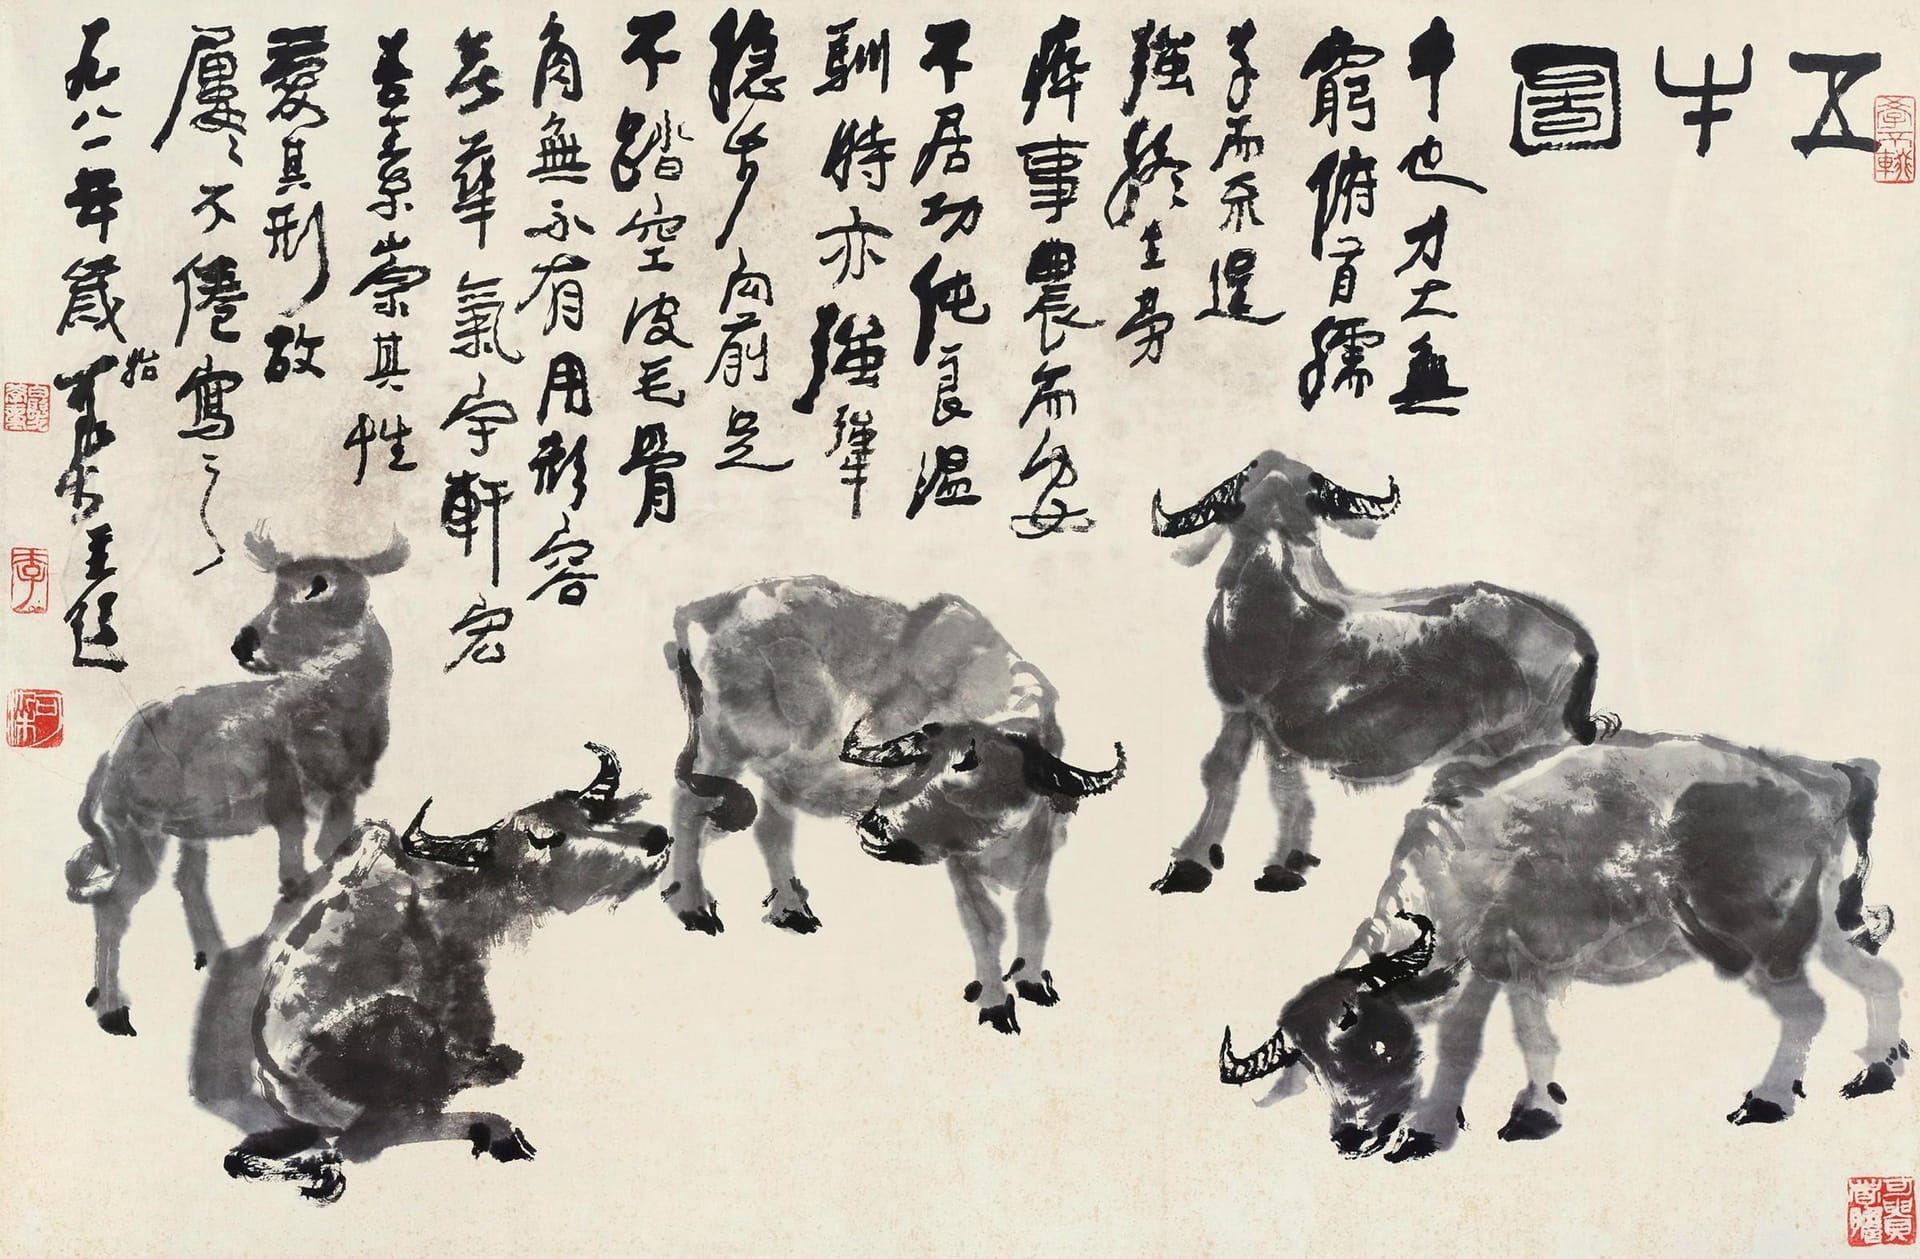 五牛圖
牛也力大無
窮俯首孺
子而不逞
強終生勞
瘁事農而安
不居功純良溫
馴時亦強犟
穩步向前足
不踏空皮毛骨
角無不有用形容
無華氣宇軒宏
吾素崇其性
愛其形故
屢屢不倦寫之
一九八一年歲始可染題
李
可染
可貴者膽